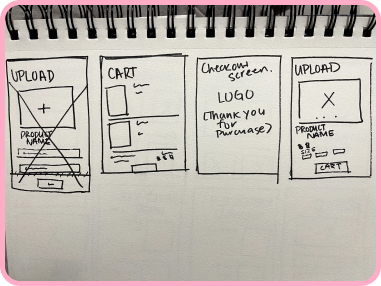 UPLOAD
+
PRODUCT
NAME
CART
Checkout
screen.
LOGO
(Thank you
for
Purchase)
UPLOAD
X
...
PRODUCT
NAME
CART